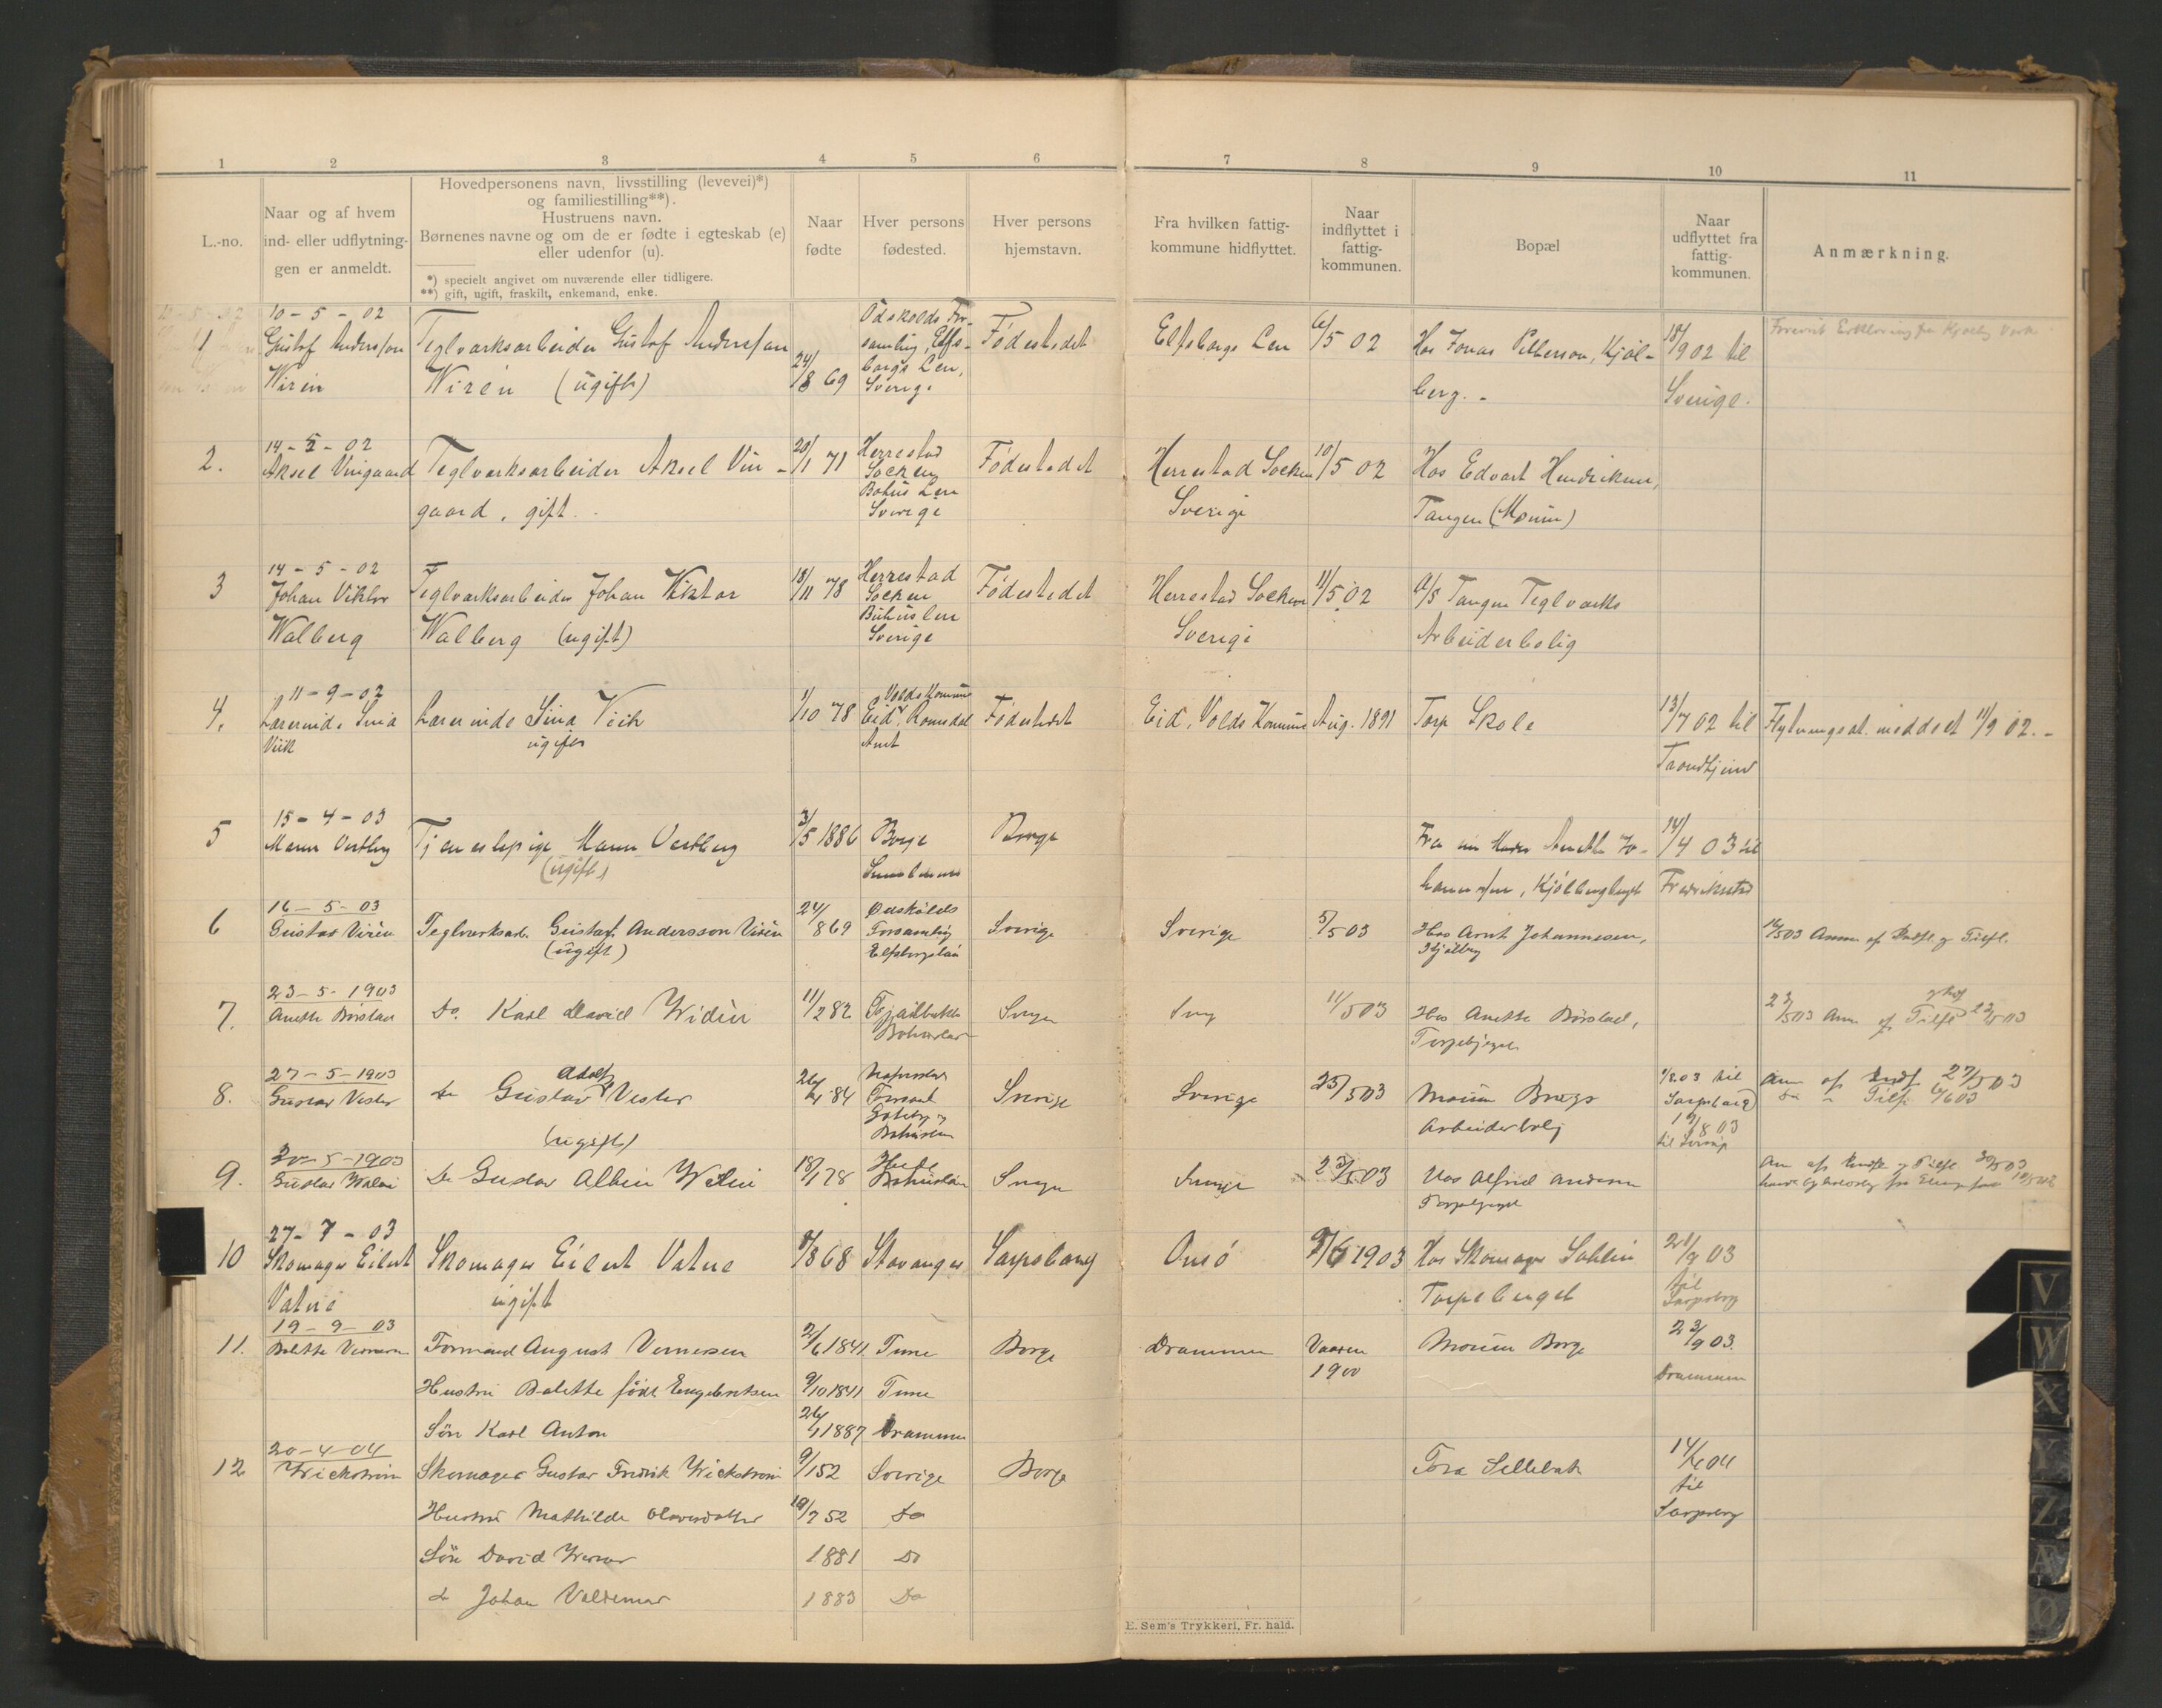 1 2 3 4 5 6 7 8 9 10 11
L.-no.
Naar og af hvem
ind- eller udflytnin-
gen er anmeldt.
Hovedpersonens navn, livsstilling (levevei)*)
og familiestilling**).
Hustruens navn.
Børnenes navne og om de er fødte i egteskab (e)
eller udenfor (u).
*) specielt angivet om nuværende eller tidligere.
**) gift, ugift, fraskilt, enkemand, enke.
Naar
fødte
Hver persons
fødested.
Hver persons
hjemstavn.
Fra hvilken fattig-
kommune hidflyttet.
Naar
indflyttet i
fattig-
kommunen.
Bopæl
Naar
udflyttet fra
fattig-
kommunen.
Anmærkning.
1
10-5-02
Gustof Andersson
Wirén
Teglværksarbeider Gustof Andersson
Wirén (ugift)
24/8 69
Ödskolds For-
samling, Elfs-
borgs Len,
Sverige
Fødestedet
Elfsborgs Len
6/5 02
Hos Jonas Petterson, Kjøl-
berg.
18/9 02 til
Sverige.
2.
14-5-02
Aksel Vingaard
Teglværksarbeider Aksel Vin-
gaard, gift.
20/1 71
Herrestad
Socken
Bohus Len
Sverige
Fødestedet
Herrestad Socken
Sverige
10/5 02
Hos Edvart Hendriksen,
Tangen (Moum)
3
14-5-02
Johan Viktor
Walberg
Teglværksarbeider Johan Viktor
Walberg (ugift)
18/11 78
Herrestad
Socken
Bohuslen
Sverige
Fødestedet
Herrestad Socken
Sverige
11/5 02
A/S Tangen Teglværks
Arbeiderbolig
4.
11-9-02
Lærerinde Sina
Viik
Lærerinde Sina Viik
ugift
1/10 78
Volds Kommune
Eid, Romsdal
Amt
Fødestedet
Eid, Volds Komune
Aug. 1891
Torp Skole
13/7 02 til
Trondhjem
Flytningsat. meddelt 11/9 02.
5
15-4-03
Maren Vestberg
Tjenestepige Maren Vestberg
(ugift)
3/5 1886
Borge
Smaalenene
Borge
Fra sin Moder Anette Jo-
hannessen, Kjølbergbraget
14/4 03 til
Fredrikstad
6
16-5-03
Gustav Virén
Teglværksarb. Gustaf Andersson Virén
(ugift)
24/8 69
Ødskölds
Forsamling
Elfsborgslän
Sverige
Sverige
5/5 03
Hos Arnt Johannesen,
Kjølberg
16/5 03 Anm. af Indfl. og Tilfl.
7.
23-5-1903
Anette Børstad
Do. Karl David Widén
11/2 82
Fjällbacka
Bohuslän
Sverige
11/5 03
Hos Anette Børstad,
Torpebjerget
23/5 03 Anm. af Tilfl 23/5 03
8.
27-5-1903
Gustav Vester
do Gustav Adolf Vester
(ugift)
84
Göteborg og
Bohuslen
Sverige
Sverige
25/5 03
Moum Brugs
Arbeiderbolig
1/8 03 til
Sarpsborg
8 03
til Sverige
Anm af Indfl 27/5 03
Do " Tilfl 6/6 03
9.
30-5-1903
Gustav Welin
Do Gustav Albin Welin
18/1 78
Bohuslän
Sverige
Sverige
23/5 03
Hos Alfred Andersen
Torpebjerget
10
27-7-03
Skomager Eilert
Vatne
Skomager Eilert Vatne
ugift
8/8 68
Stavanger
Sarpsborg
Onsö
9/6 1903
Hos Skomager Sahlin
Torpebjerget
21/9 03
til
Sarpsborg
11.
19-9-03
Bolette Vernersen
Formand August Vernersen
2/6 1841
Tune
Borge
Drammen
Vaaren
1900
Moum Borge
23/9 03.
Drammen
Hustru Bolette født Engebretsen
9/10 1841
Tune
Søn Karl Anton
26/1 1887
Drammen
12
20-4-04
Wickstrøm
Skomager Gustav Fredrik Wickstrøm
9/1 52
Sverige
Borge
Fra Sellebak
14/4 04
til
Sarpsborg
Hustru Mathilde Olavesdatter
19/7 52
Do
Søn David Werner
1881
Do
do Johan Valdemar
1883
Do
E. Sem's Trykkeri, Fr. hald.
V
W
X
Y
Z
Æ
Ø